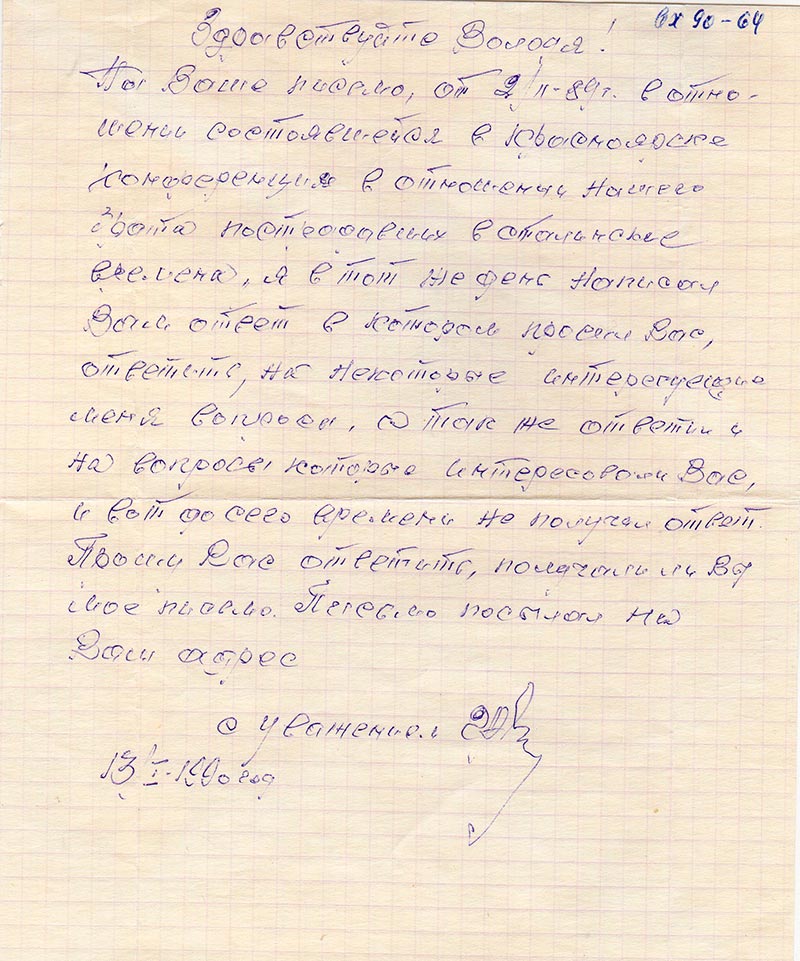 вх 90-64
Здравствуйте Володя!
На Ваше письмо, от 2/II-89г. в отно-
шении состоявшейся в Красноярске
конференция в отношении нашего
брата пострадавших в сталинские
времена, я в тот же день написал
Вам ответ в котором просил Вас,
ответить, на некоторые интересующие
меня вопросы, а так же ответил и
на вопросы которые интересовали Вас,
и вот до сего времени не получил ответ.
Прошу Вас ответить, получали ли Вы
мое письмо. Письмо послал на
Ваш адрес
с уважением
13/I-1990 год